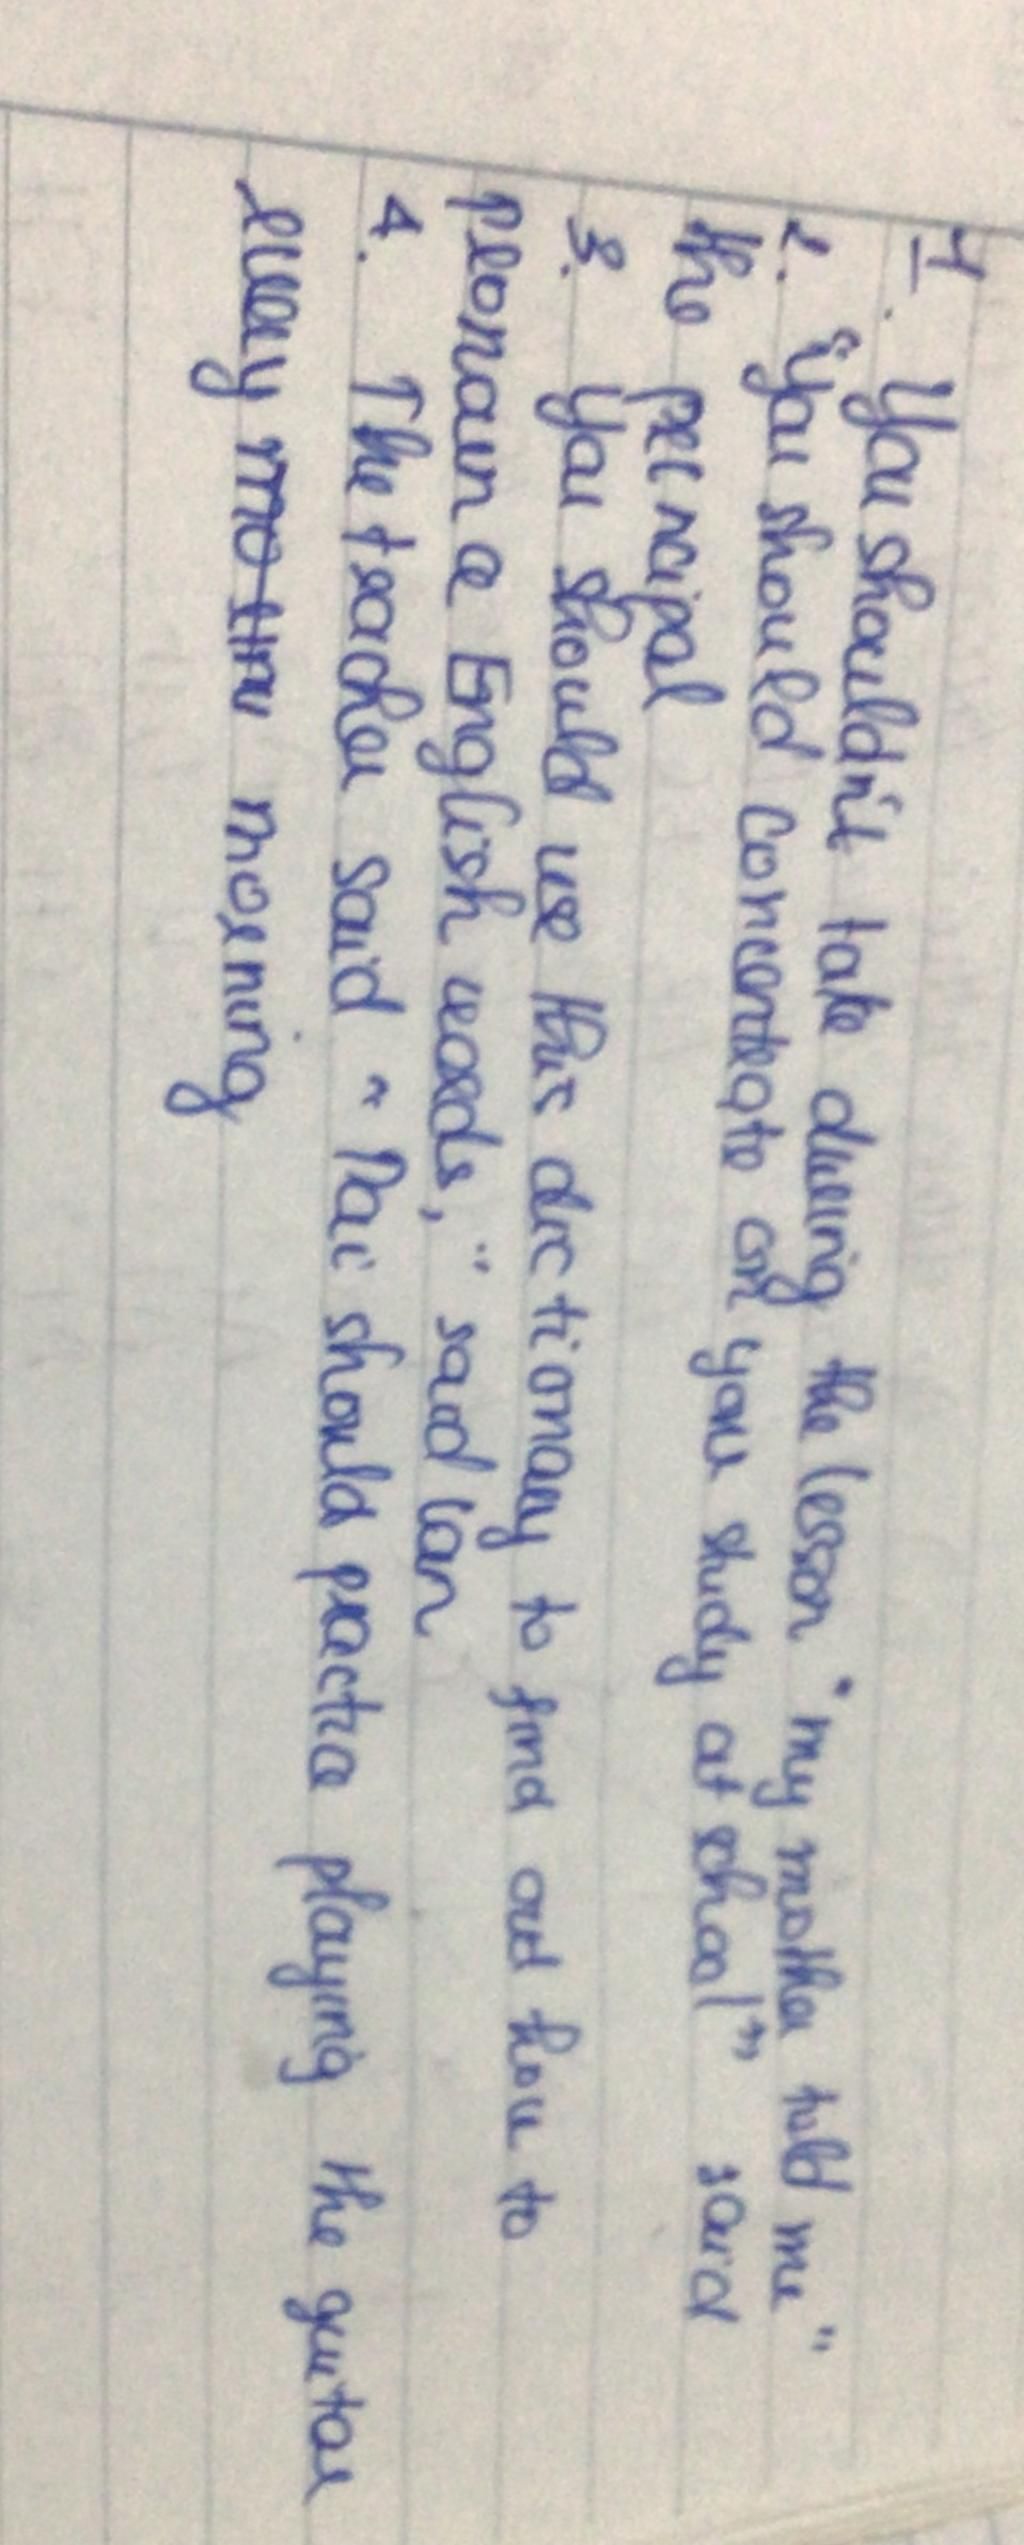 1. You shouldn't take during the lesson " my mother told me "
2. "you should concentrate on you study at school" said
the principal
3. you should use this dictionary to find out how to
pronoun a English words," said lan
4. The teacher said " Nai should practice playing the guitar
every morning